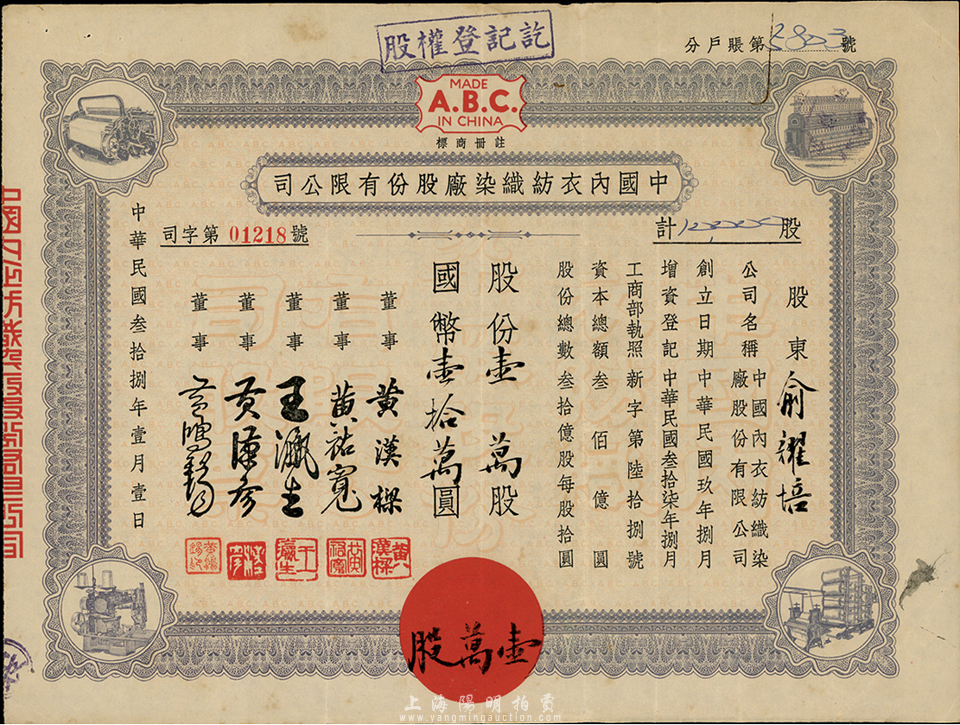 股權登記記訖
分戶賬第5803號
MADE
A.B.C.
IN CHINA
註冊商標
中國內衣紡織染廠股份有限公司
計10,000股
司字第01218號
股東俞耀培
公司名稱中國內衣紡織染廠股份有限公司
創立日期中華民國玖年捌月
增資登記中華民國叁拾柒年捌月
工商部執照新字第陸拾捌號
資本總額叁佰億圓
股份總數叁拾億股每股拾圓
股份壹萬股
國幣壹拾萬圓
董事黃漢樑
董事黃祐寬
董事王瀛生
董事黃漢彥
董事
中華民國叁拾捌年壹月壹日
黃漢樑
王瀛生
壹萬股
上海陽明拍賣
www.yangmingauction.com